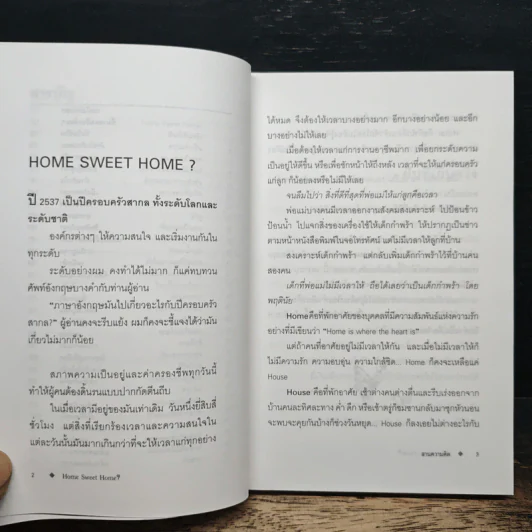 HOME SWEET HOME ?
ปี 2537 เป็นปีครอบครัวสากล ทั้งระดับโลกและ
ระดับชาติ
องค์กรต่างๆ ให้ความสนใจ และเริ่มงานกันใน
ทุกระดับ
ระดับอย่างผม คงทำได้ไม่มาก ก็แค่ทบทวน
ศัพท์อังกฤษบางคำกับท่านผู้อ่าน
"ภาษาอังกฤษมันไปเกี่ยวอะไรกับปีครอบครัว
สากล?" ผู้อ่านคงจะรีบแย้ง ผมก็คงจะชี้แจงได้ว่ามัน
เกี่ยวไม่มากก็น้อย
สภาพความเป็นอยู่และค่าครองชีพทุกวันนี้
ทำให้ผู้คนต้องดิ้นรนแบบปากกัดตีนถีบ
ในเมื่อเวลามีอยู่ของมันเท่าเดิม วันหนึ่งยี่สิบสี่
ชั่วโมง แต่สิ่งที่เรียกร้องเวลาและความสนใจใน
แต่ละวันนั้นมันมากเกินกว่าที่จะให้เวลาแก่ทุกอย่าง
2 ◆ Home Sweet Home?
ได้หมด จึงต้องให้เวลาบางอย่างมาก อีกบางอย่างน้อย และอีก
บางอย่างไม่ให้เลย
เมื่อต้องให้เวลาแก่การงานอาชีพมาก เพื่อยกระดับความ
เป็นอยู่ให้ดีขึ้น หรือเพื่อชักหน้าให้ถึงหลัง เวลาที่จะให้แก่ครอบครัว
แก่ลูก ก็น้อยลงหรือไม่มีให้เลย
จนลืมไปว่า สิ่งที่ดีที่สุดที่พ่อแม่ให้แก่ลูกคือเวลา
พ่อแม่บางคนมีเวลาออกงานสังคมสงเคราะห์ ไปป้อนข้าว
ป้อนน้ำ ไปแจกสิ่งของเครื่องใช้ให้เด็กกำพร้า ให้ปรากฏเป็นข่าว
ตามหน้าหนังสือพิมพ์ในจอโทรทัศน์ แต่ไม่มีเวลาให้ลูกที่บ้าน
สงเคราะห์เด็กกำพร้า แต่กลับเพิ่มเด็กกำพร้าไว้ที่บ้านคน
สองคน
เด็กที่พ่อแม่ไม่มีเวลาให้ ถือได้เลยว่าเป็นเด็กกำพร้า โดย
พฤตินัย
Home คือที่พักอาศัยของบุคคลที่มีความสัมพันธ์แห่งความรัก
อย่างที่มีเขียนว่า "Home is where the heart is"
แต่ถ้าคนที่อาศัยอยู่ไม่มีเวลาให้กัน และเมื่อไม่มีเวลาให้ก็
ไม่มีความรัก ความอบอุ่น ความใกล้ชิด... Home ก็คงจะเหลือแค่
House
House คือที่พักอาศัย เช้าต่างคนต่างตื่นและรีบเร่งออกจาก
บ้านคนละทิศละทาง ค่ำ ดึก หรือเช้าตรู่ก็ซมซานกลับมาซุกหัวนอน
จะพบจะคุยกันบ้างก็ช่วงวันหยุด... House ก็ลงเอยไม่ต่างอะไรกับ
สานความคิด ◆ 3